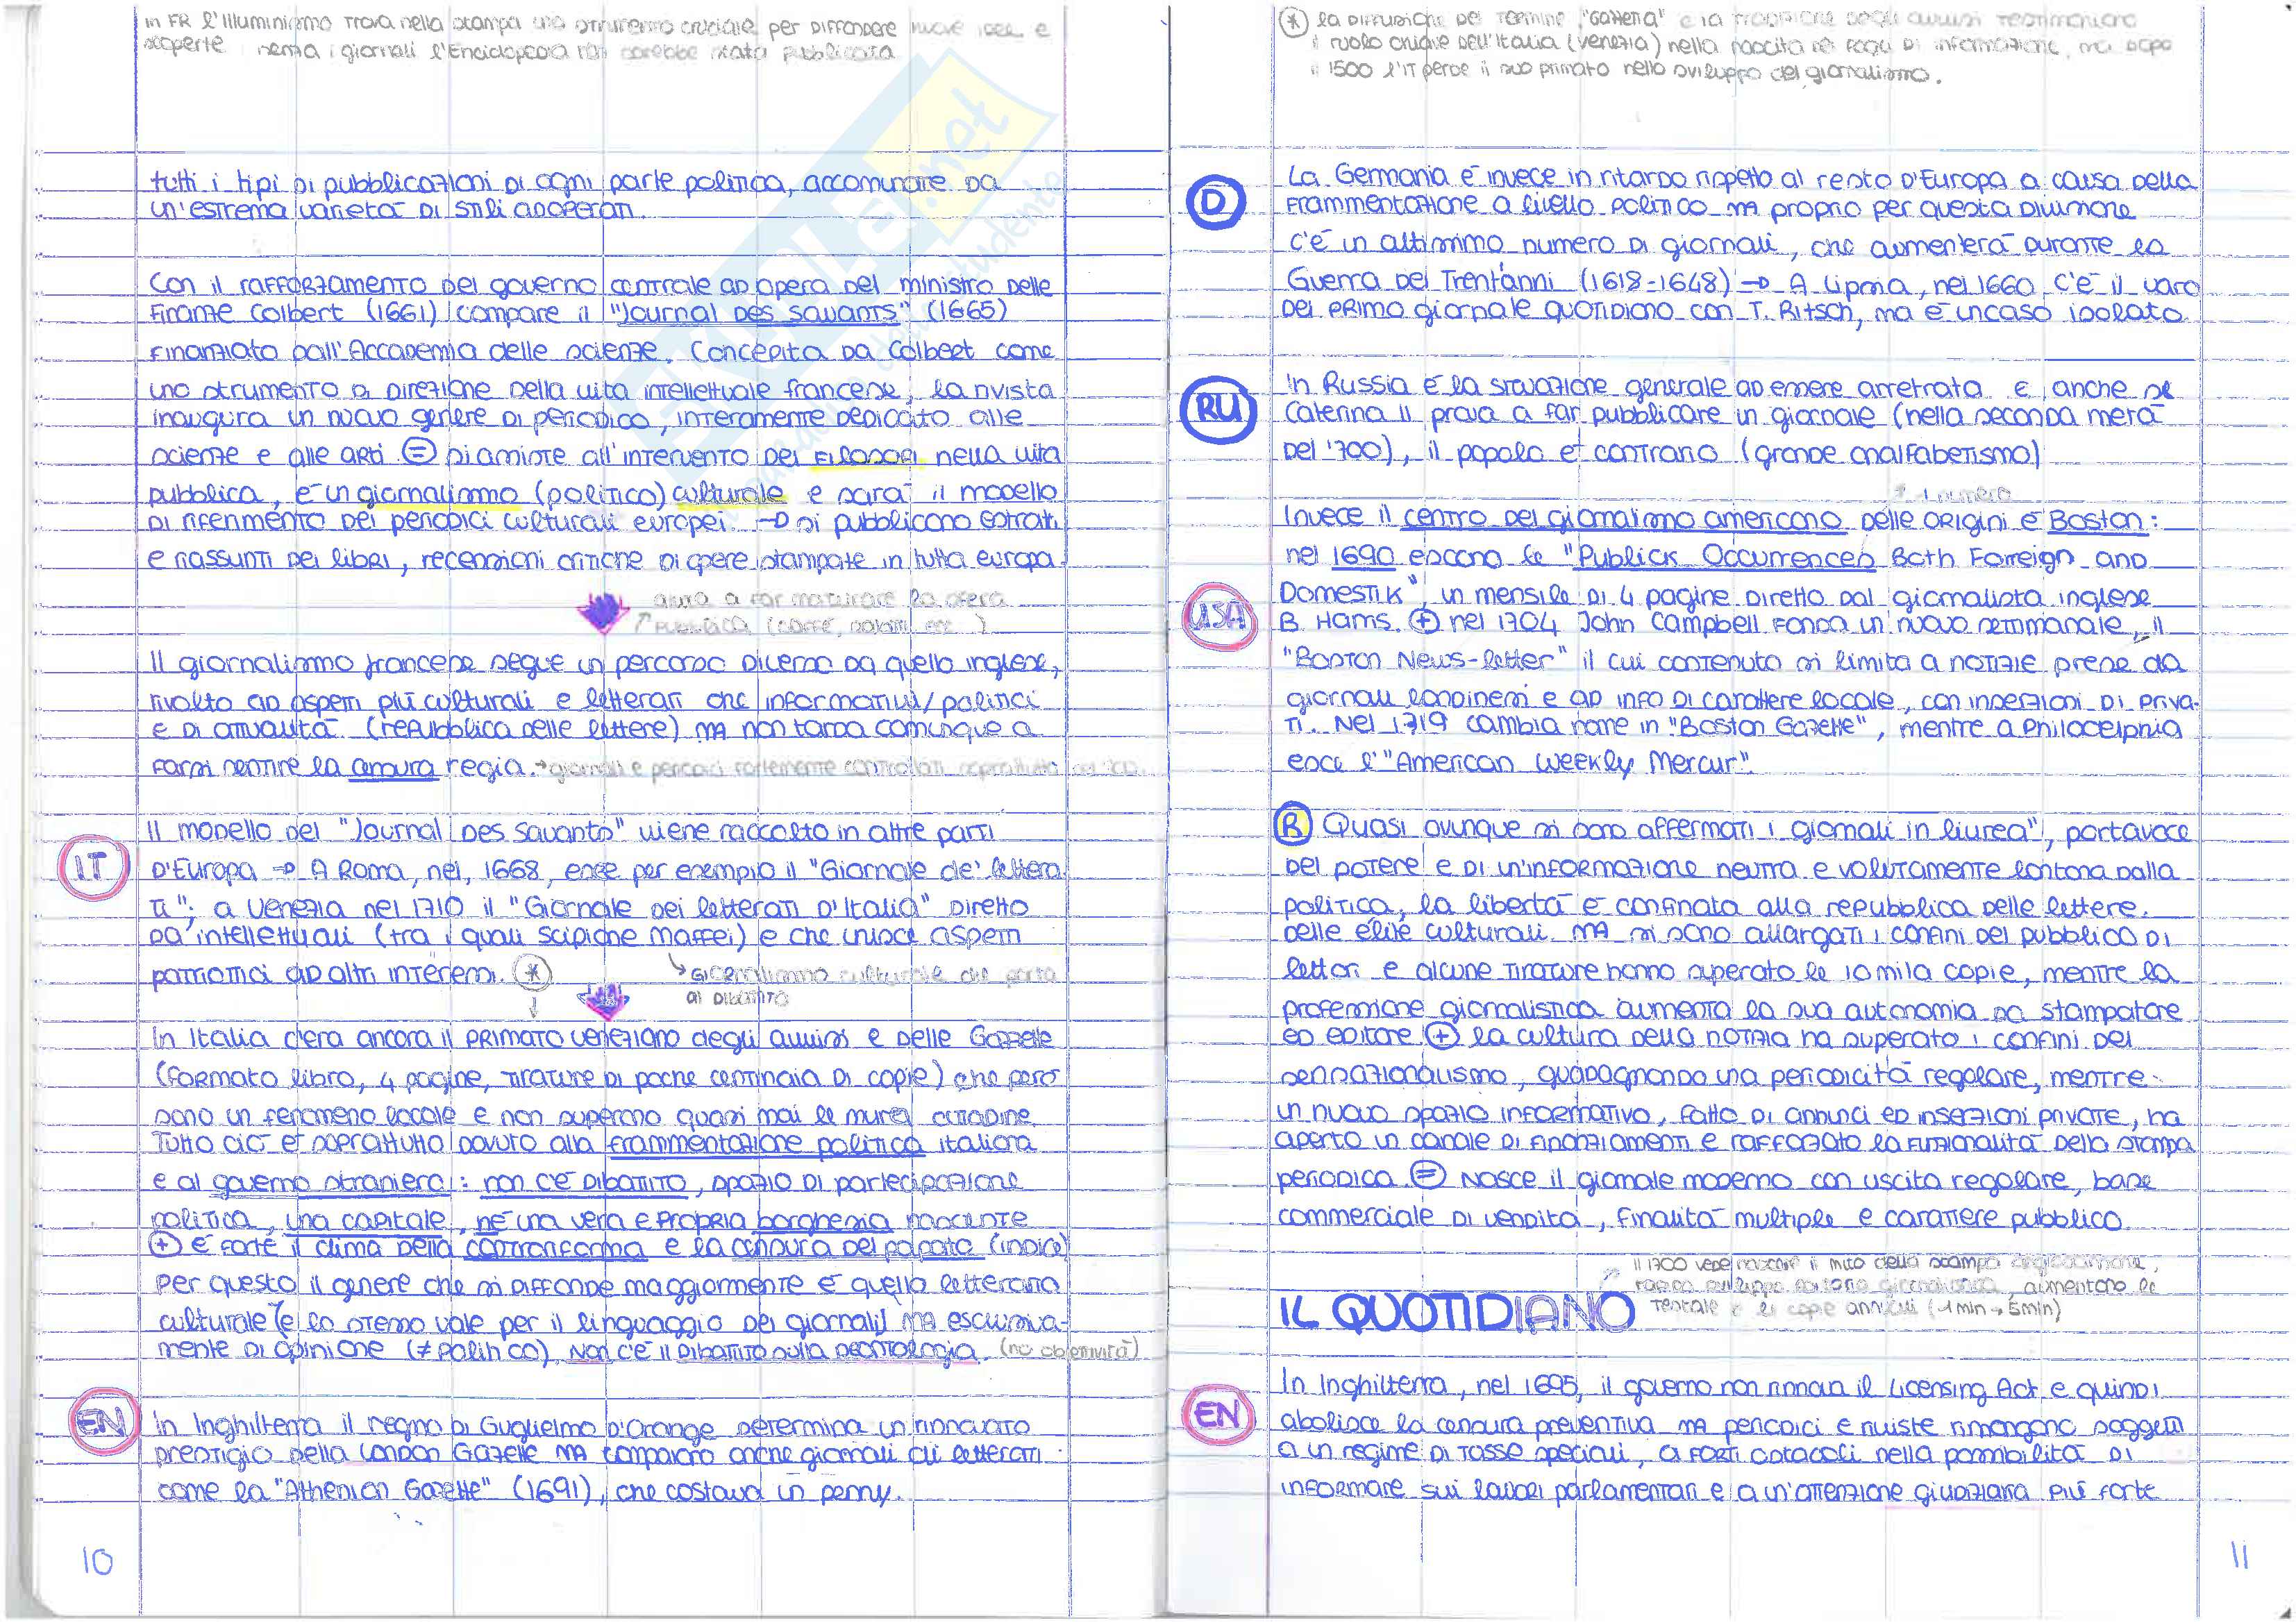 in FR l'Illuminismo trova nella stampa uno strumento cruciale per diffondere nuove idee e
scoperte senza i giornali l'Enciclopedia non sarebbe stata pubblicata
tutti i tipi di pubblicazioni di ogni parte politica, accomunate da
un'estrema varietà di stili adoperati.
Con il rafforzamento del governo centrale ad opera del ministro delle
Finanze Colbert (1661) compare il "Journal des Savants" (1665)
finanziato dall'Accademia delle scienze. Concepita da Colbert come
uno strumento di direzione della vita intellettuale francese, la rivista
inaugura un nuovo genere di periodico, interamente dedicato alle
scienze e alle arti = si assiste all'intervento dei FILOSOFI nella vita
pubblica, è un giornalismo (politico) culturale e sarà il modello
di riferimento dei periodici culturali europei. → si pubblicano estratti
e riassunti dei libri, recensioni critiche di opere stampate in tutta europa.
aiuta a far maturare la sfera
↑ pubblica (caffè, salotti ecc.)
Il giornalismo francese segue un percorso diverso da quello inglese,
rivolto ad aspetti più culturali e letterari che informativi/politici
e di attualità (repubblica delle lettere) MA non tarda comunque a
farsi sentire la censura regia. → giornali e periodici fortemente controllati soprattutto nel '700.
IT
Il modello del "Journal des Savants" viene raccolto in altre parti
d'Europa → A Roma, nel 1668, esce per esempio il "Giornale de' lettera
ti"; a Venezia nel 1710 il "Giornale dei letterati d'Italia" diretto
da intellettuali (tra i quali Scipione Maffei) e che unisce aspetti
patriottici ad altri interessi. (*) ↳ giornalismo culturale che porta
al dibattito
In Italia c'era ancora il PRIMATO veneziano degli avvisi e delle Gazzette
(formato libro, 4 pagine, tirature di poche centinaia di copie) che però
sono un fenomeno locale e non superano quasi mai le mura cittadine.
Tutto ciò è soprattutto dovuto alla frammentazione politica italiana
e al governo straniero: non c'è dibattito, spazio di partecipazione
politica, una capitale, nè una vera e propria borghesia nascente
+ è forte il clima della controriforma e la censura del papato (indice)
per questo il genere che si diffonde maggiormente è quello letterario
culturale (e lo stesso vale per il linguaggio dei giornali) MA esclusiva-
mente di opinione (≠ politico). Non c'è il dibattito sulla deontologia. (no obiettività)
EN
In Inghilterra il regno di Guglielmo d'Orange determina un rinnovato
prestigio della London Gazette MA compaiono anche giornali di letterati
come la "Athenian Gazette" (1691), che costava un penny.
10
(*) la diffusione del termine "gazzetta" e la tradizione degli avvisi testimoniano
il ruolo chiave dell'Italia (Venezia) nella nascita dei fogli di informazione, ma dopo
il 1500 l'IT perde il suo primato nello sviluppo del giornalismo.
D
La Germania è invece in ritardo rispetto al resto d'Europa a causa della
frammentazione a livello politico MA proprio per questa divisione
c'è un altissimo numero di giornali, che aumenterà durante la
Guerra dei Trent'anni (1618-1648) → A Lipsia, nel 1660 c'è il varo
del PRIMO giornale QUOTIDIANO con T. Ritsch, ma è un caso isolato.
RU
In Russia è la situazione generale ad essere arretrata e, anche se
Caterina II prova a far pubblicare un giornale (nella seconda metà
del '700), il popolo è contrario (grande analfabetismo)
↑ 1 numero
Invece il centro del giornalismo americano delle origini è Boston:
nel 1690 escono le "Publick Occurrences Both Forreign and
USA
Domestik", un mensile di 4 pagine diretto dal giornalista inglese
B. Harris. + nel 1704 John Campbell fonda un nuovo settimanale, il
"Boston News-letter" il cui contenuto si limita a notizie prese da
giornali londinesi e ad info di carattere locale, con inserzioni di priva-
ti. Nel 1719 cambia nome in "Boston Gazette", mentre a Philadelphia
esce l'"American Weekly Mercur".
R Quasi ovunque si sono affermati i giornali in livrea", portavoce
del potere e di un'informazione neutra e volutamente lontana dalla
politica, la libertà è confinata alla repubblica delle lettere.
delle élite culturali. MA si sono allargati i confini del pubblico di
lettori e alcune tirature hanno superato le 10 mila copie, mentre la
professione giornalistica aumenta la sua autonomia da stampatore
ed editore + la cultura della notizia ha superato i confini del
sensazionalismo, guadagnando una periodicità regolare, mentre
un nuovo spazio informativo, fatto di annunci ed inserzioni private, ha
aperto un canale di finanziamenti e rafforzato la funzionalità della stampa
periodica. = Nasce il giornale moderno con uscita regolare, base
commerciale di vendita, finalità multiple e carattere pubblico.
Il 1700 vede nascere il mito della stampa anglosassone,
aumentano le
IL QUOTIDIANO testate e le copie annuali (1 min → 5 min)
EN
In Inghilterra, nel 1695, il governo non rinnova il Licensing Act e quindi
abolisce la censura preventiva MA periodici e riviste rimangono soggetti
a un regime di tasse speciali, a forti ostacoli nella possibilità di
informare sui lavori parlamentari e a un'attenzione giudiziaria più forte
11